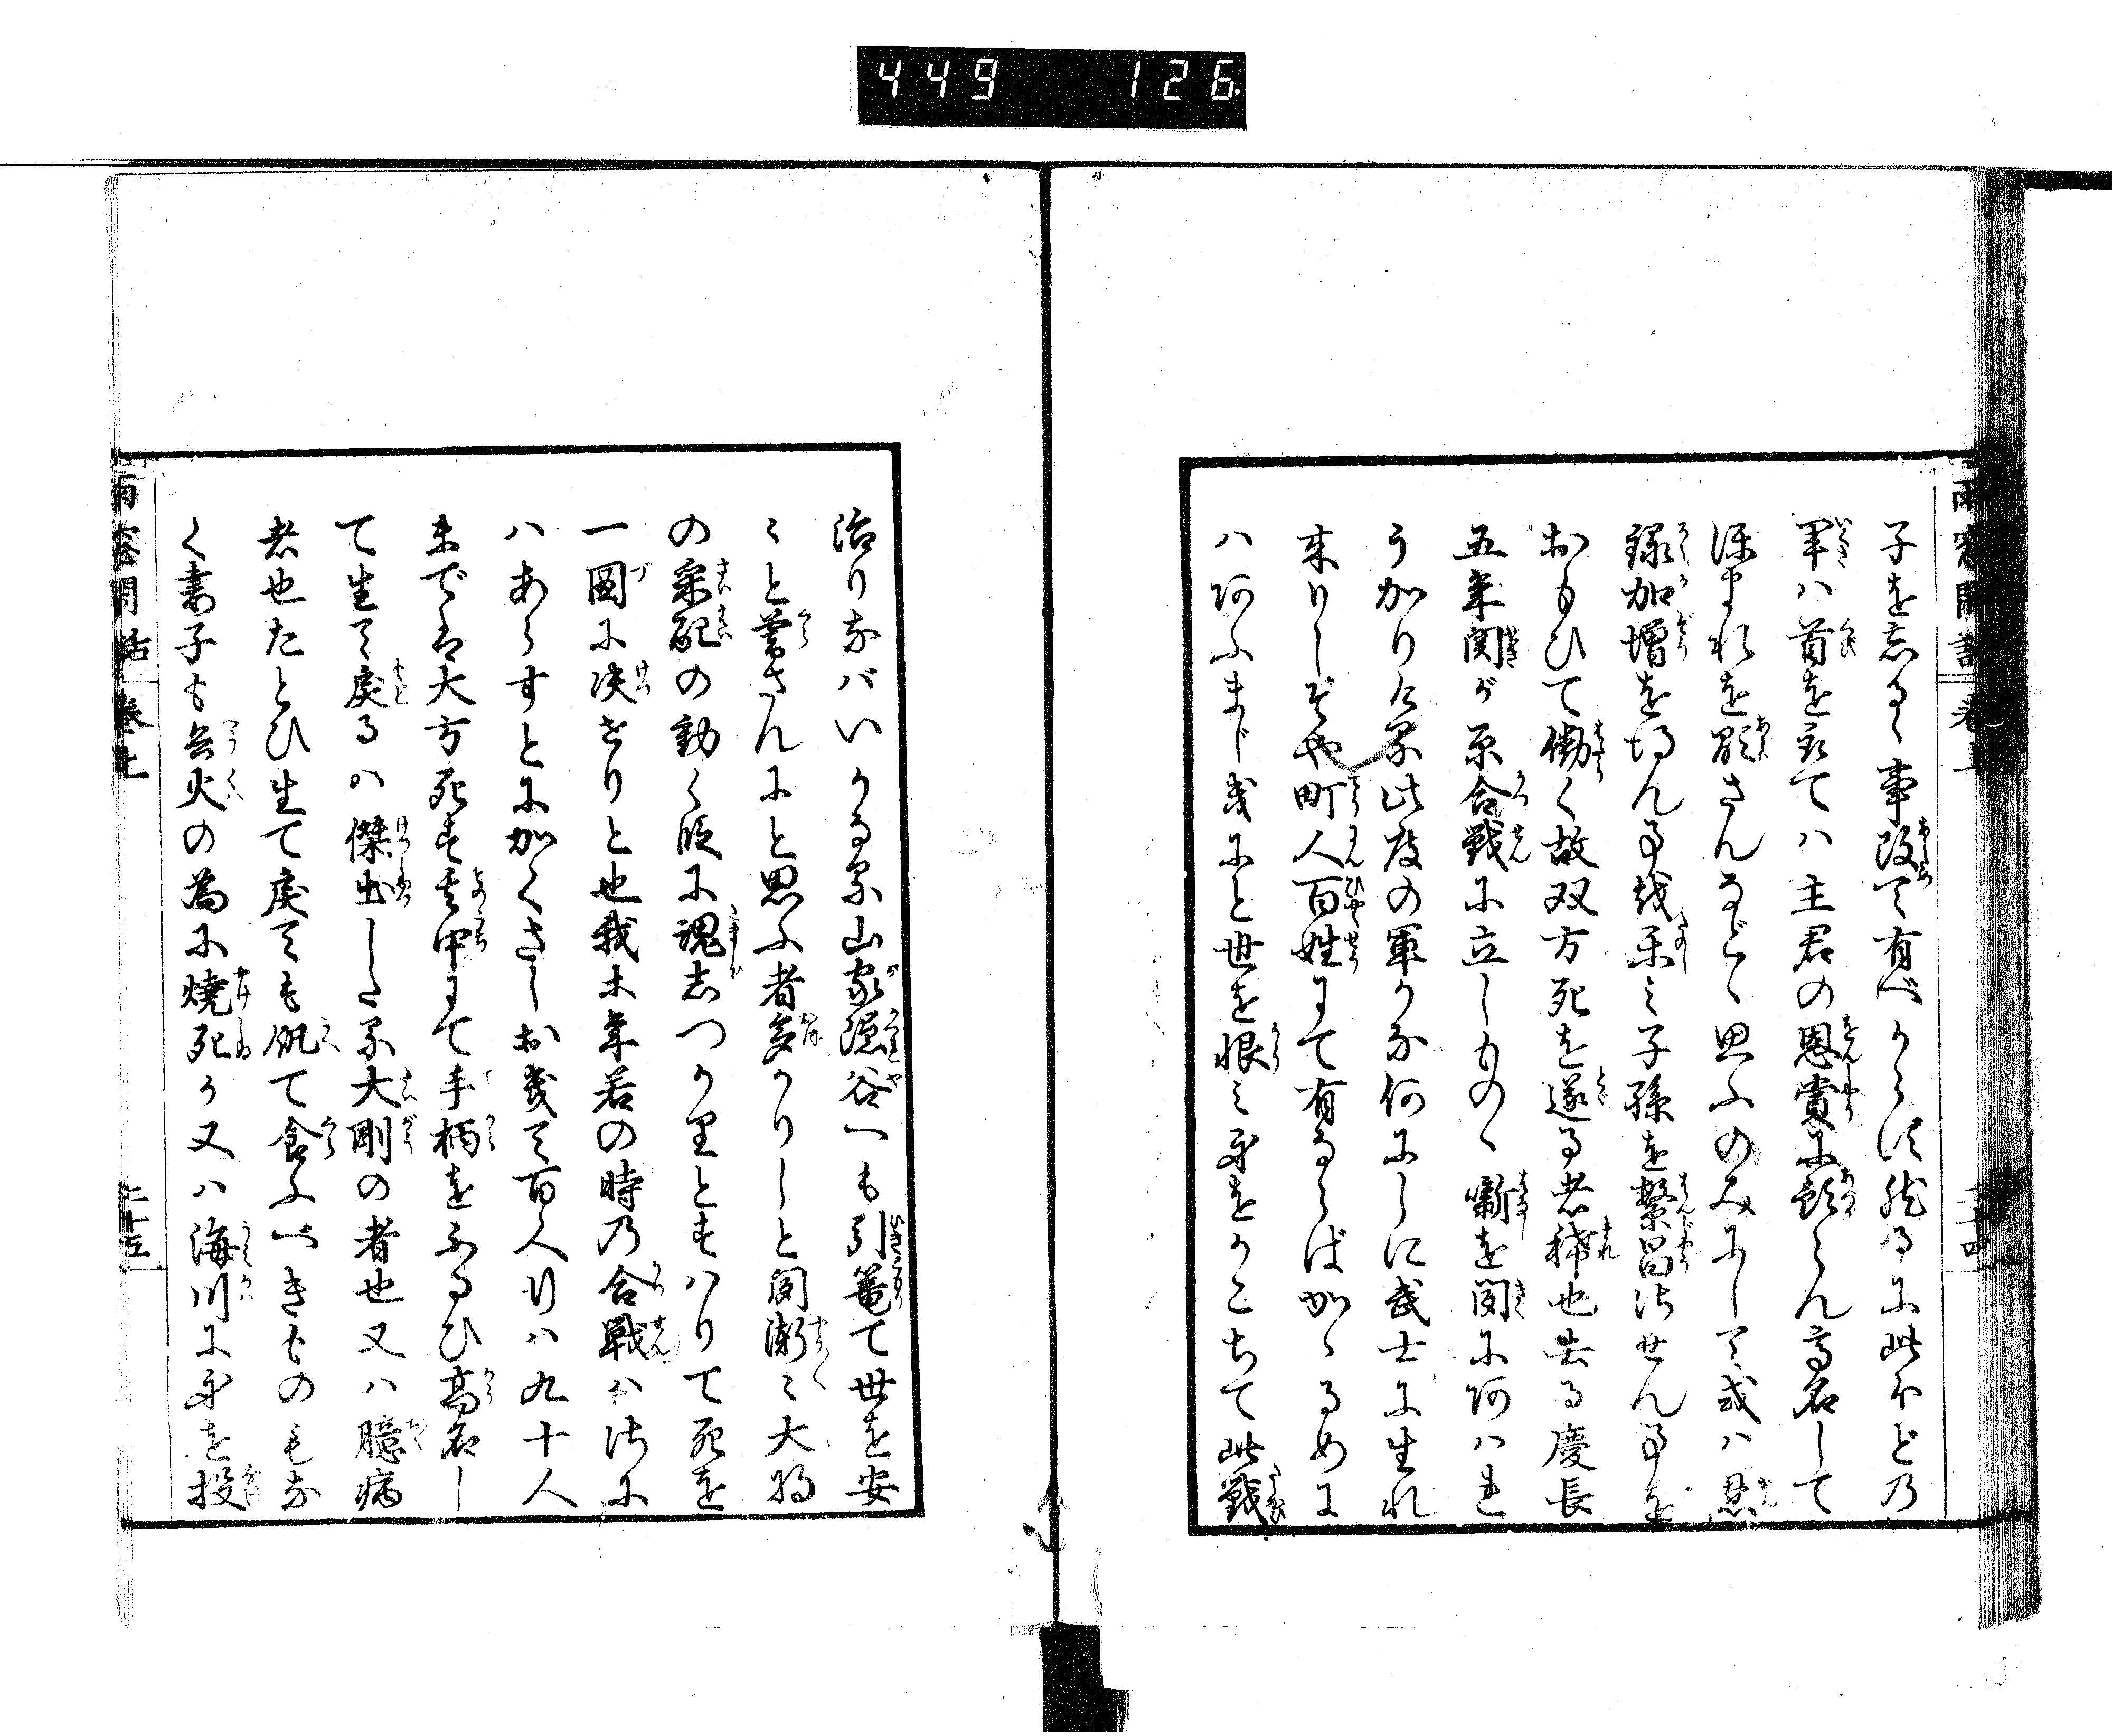 449 126
雨窓閑話 巻上 二十四
子を志るゝ事改て有べからず然るに此ほどの
軍ハ首を取てハ主君の恩賞に預らん高名して
誉られを顕さんなどゝ思ふのみにして或ハ恩
録加増を得んの事或楽ミ子孫を繫昌はせんの事を
おもひて働く故双方死を遂る者稀也去る慶長
五年関が原合戦に立しものゝ噺を聞に阿ハれ
うかりける此度の軍かな何にしに武士に生れ
来りしぞや町人百姓にて有ならばかゝるめに
ハ阿ふまじ幾にと世を恨ミ身をかこちて此戦
治りなバいかなる山家隠谷へも引篭て世を安
くと暮さんにと思ふ者多かりしと聞漸々大将
の采配の動く後に魂志つかりとすハりて死を
一図に决せりと也我木年若の時乃合戦ハはに
ハあらすとにかくさしお幾て百人行ハ九十人
までハ大方死す其中にて手柄をふるひ高名し
て生て戻るハ傑出したる大剛の者也又ハ臆病
者也たとひ生て戻ても飢て食ふべきもの毛な
く妻子も兵火の為に焼死か又ハ海川に身を投
雨窓閑話 巻上 二十五